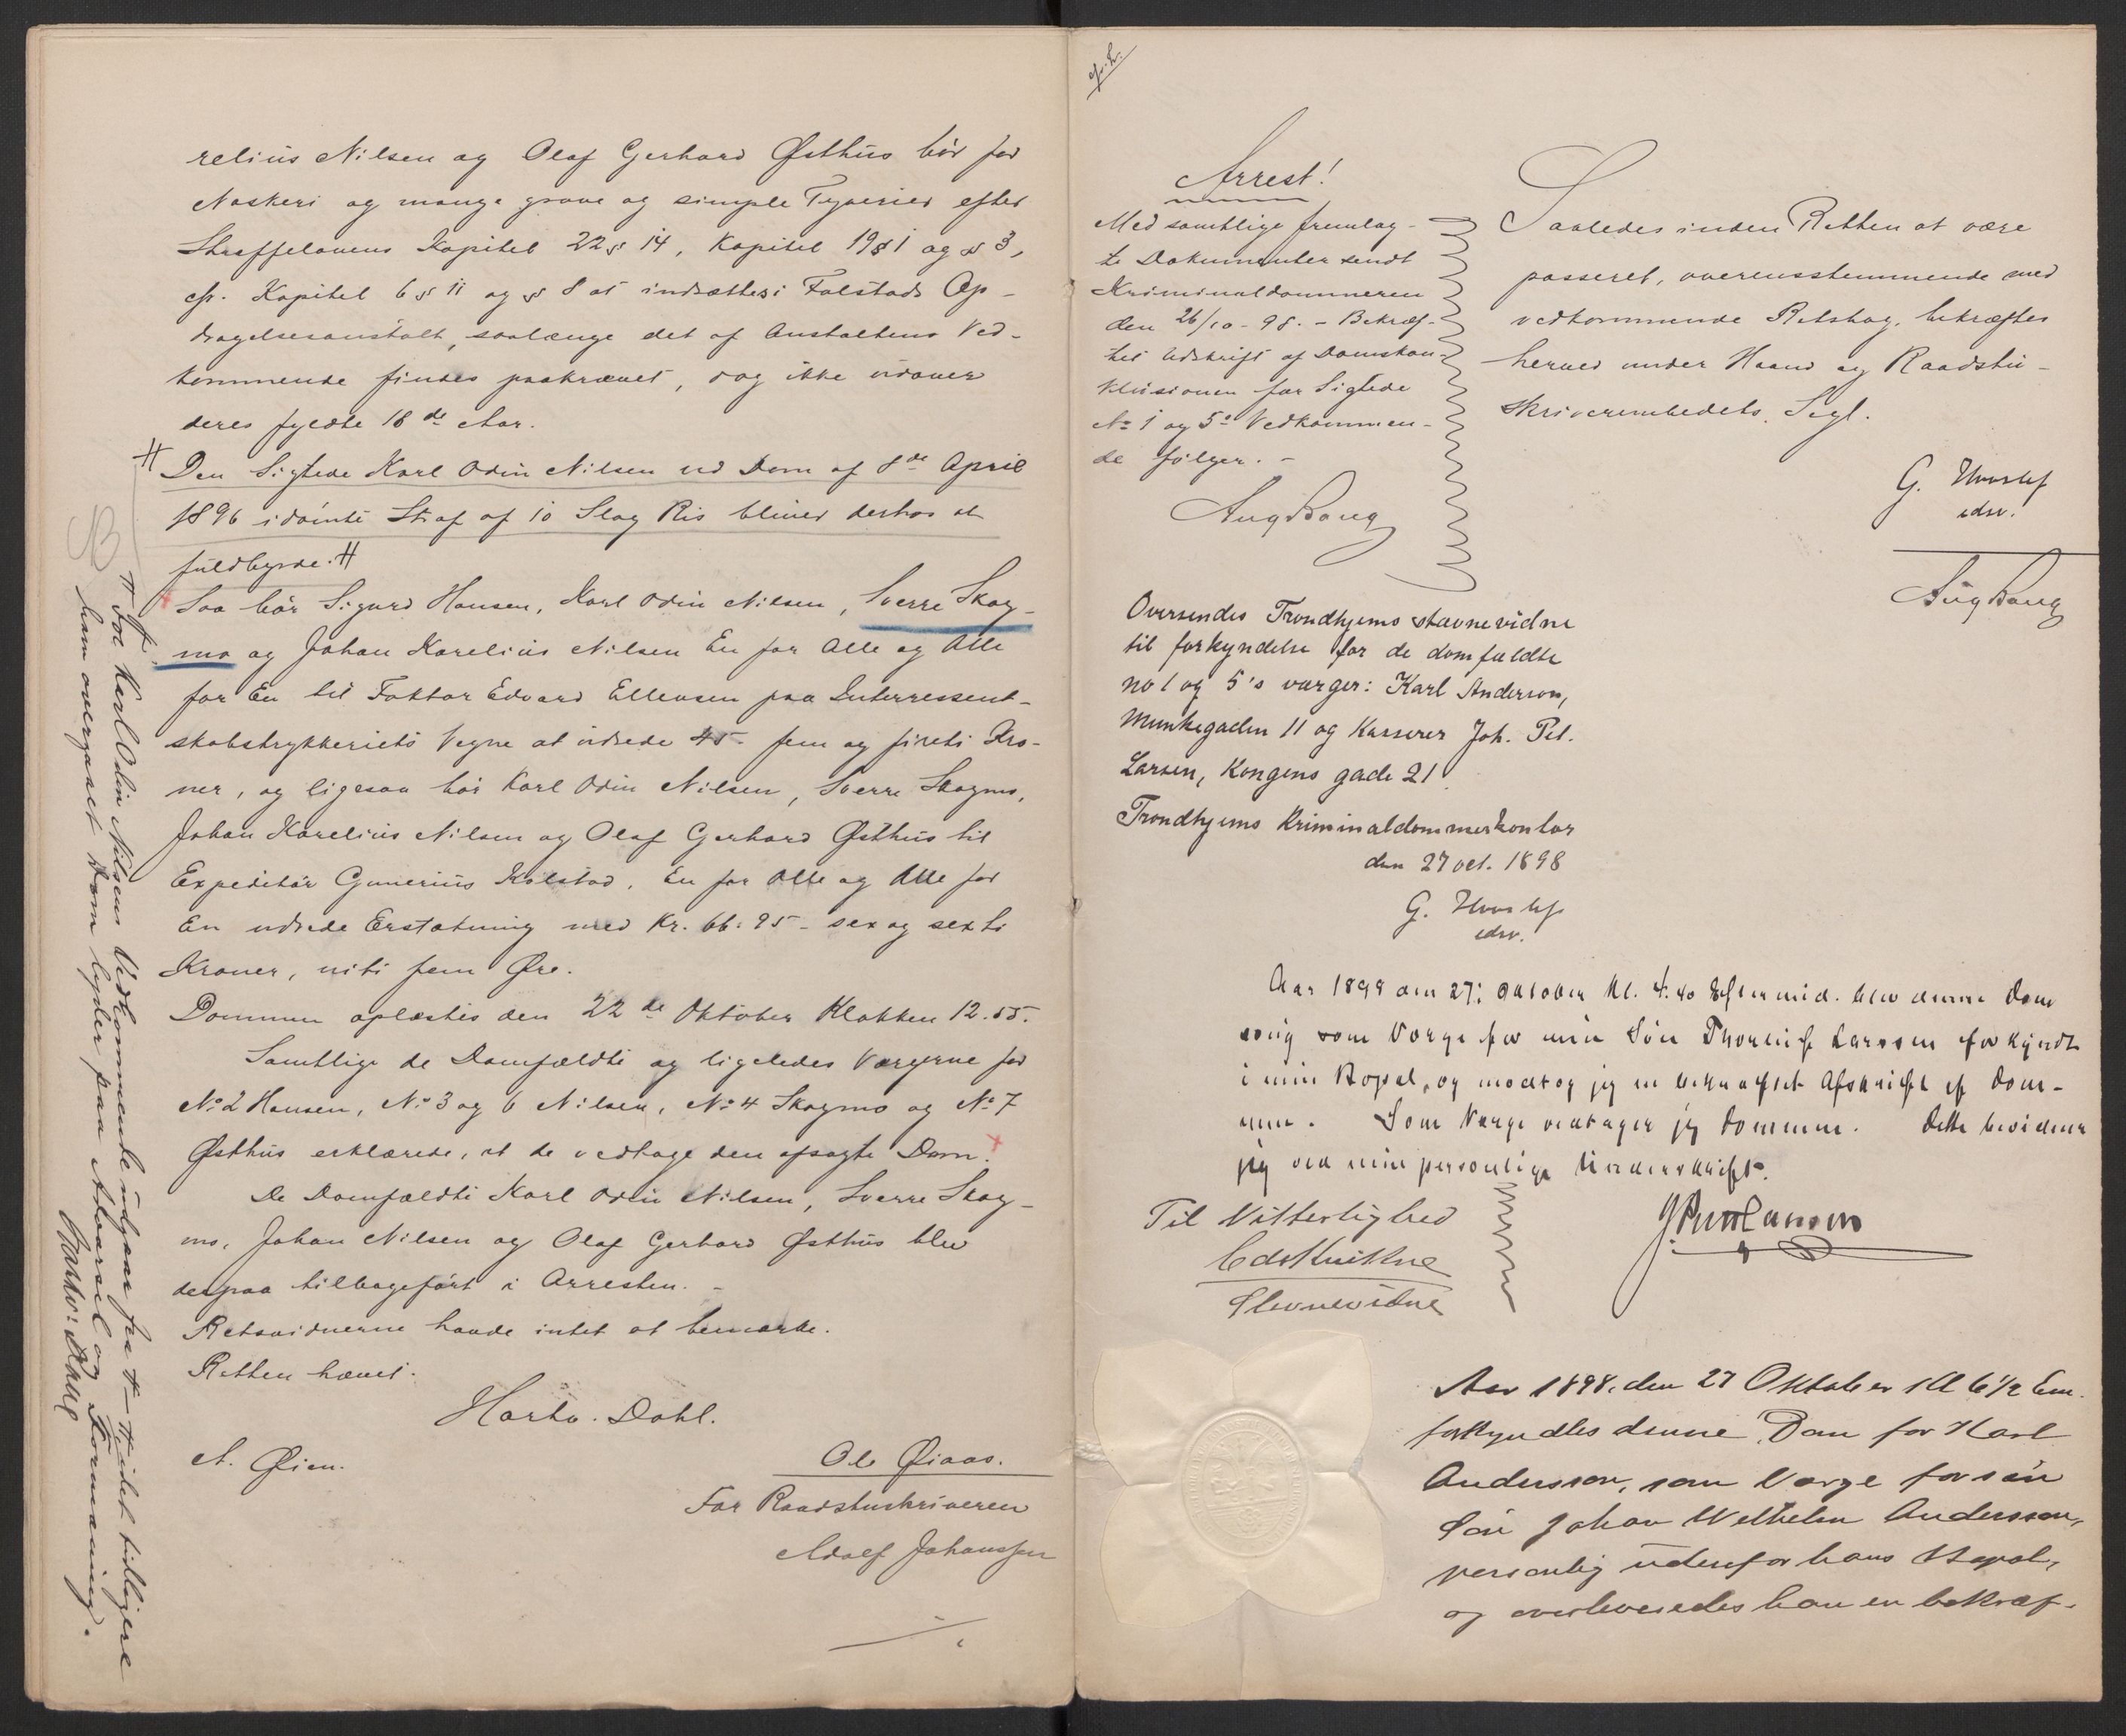 relius Nilsen og Olaf Gerhard Østhus bør for
Naskeri og mange grove og simple Tyverier efter
Straffelovens Kapitel 22 § 14, Kapitel 19 § 1 og § 3,
cfr. Kapitel 6 § 11 og § 8 at indsættes i Falstads Op-
dragelsesanstalt, saalænge det af Anstaltens Ved-
kommende findes paakrævet, dog ikke udover
deres fyldte 18de Aar.
# Den Sigtede Karl Odin Nilsen ved Dom af 8de April
1896 idømte Straf af 10 Slag Ris bliver derhos at
fuldbyrde. #
Saa bør Sigurd Hansen, Karl Odin Nilsen, Sverre Skog-
mo og Johan Karelius Nilsen En for Alle og Alle
for En til Faktor Edvard Ellevsen paa Interressent-
skabstrykkeriets Vegne at udrede 45 - fem og fireti Kro-
ner, og ligesaa bør Karl Odin Nilsen, Sverre Skogmo,
Johan Karelius Nilsen og Olaf Gerhard Østhus til
Expeditør Gunerius Kolstad, En for Alle og Alle for
En udrede Erstatning med Kr. 66.95 - sex og sexti
Kroner, niti fem Øre.
Dommen oplæstes den 22de Oktober Klokken 12.55.
Samtlige de Domfældte og ligeledes Værgerne for
No 2 Hansen, No 3 og 6 Nilsen, No 4 Skogmo og No 7
Østhus erklærede, at de vedtage den afsagte Dom.
De Domfældte Karl Odin Nilsen, Sverre Skog-
mo, Johan Nilsen og Olaf Gerhard Østhus blev
derpaa tilbageført i Arresten. -
Retsvidnerne havde intet at bemærke.
Retten hævet.
Hartv. Dahl.
A. Øien.
Ole Øiaas.
For Raadstuskriveren
Adolf Johanssen
# For Karl Odin Nilsens Vedkommende udgaar fra # - #, idet tidligere
af ham overgaaet Dom lyder paa Advarsel og Formaning.
Hartv: Dahl
Arrest!
Med samtlige fremlag-
te Dokumenter sendt
Kriminaldommeren
den 26/10 - 98. - Bekræf-
tet Udskrift af Domskon-
klusionen for Sigtede
No 1 og 5s Vedkommen-
de følger. -
Aug Bang
Saaledes inden Retten at være
passeret, overensstemmende med
vedkommende Retsbog, bekræftes
herved under Haand og Raadstu-
skriverembedets Segl.
G. Hvoslef
edsv.
Aug Bang
Oversendes Trondhjems stævnevidne
til forkyndelse for de domfældte
no 1 og 5's værger: Karl Anderson,
Munkegaden 11 og Kasserer Joh. Pet.
Larsen, Kongens gade 21.
Trondhjems Kriminaldommerkontor
den 27 oct. 1898
G. Hvoslef
edsv.
Aar 1898 den 27: Oktober kl. 4.40 Eftermid. blev denne Dom
mig som Værge for min Søn Thorleif Larssen forkyndt
i min Bopæl, og modtog jeg en bekræftet Afskrift af Dom-
men. Som Værge vedtager jeg Dommen. Dette bevidner
jeg ved min personlige Underskrift.
Til Vitterlighed
Stevnevidne
Aar 1898, den 27 Oktober Kl 6 1/2 Em.
forkyndtes denne Dom for Karl
Andersson, som Værge for sin
Søn Johan Wilhelm Andersson,
personlig udenfor hans Bopæl,
og overleveredes ham en bekræf-